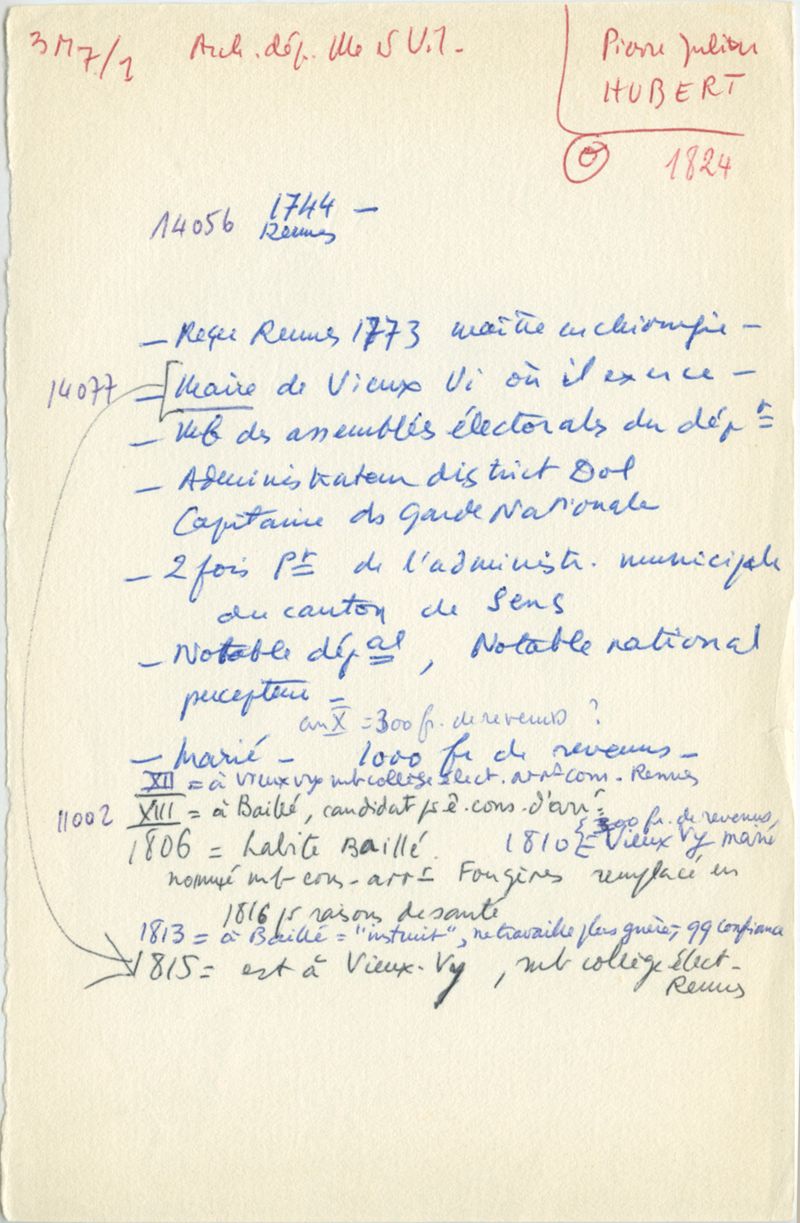 3M7/1 Arch. dép. Ille & Vil.
Pierre Julien
HUBERT
1824
14056 1744 –
Rennes
– Reçu Rennes 1773 maître en chirurgie –
14077 – Maire de Vieux Vi où il exerce –
– mb des assemblées électorales du dépt
– Administrateur district Dol
Capitaine ds Garde Nationale
– 2 fois Pt de l'administr. municipale
du canton de Sens
– Notable dépal, Notable national
percepteur –
an X = 300 fr. de revenus ?
– Marié – 1000 fr de revenus –
XII = à Vieux Vy mb collège élect. arrt com. Rennes
11002 XIII = à Baillé, candidat pr ê. cons. d'arrt
300 fr. de revenus,
1806 = habite Baillé. 1810 = Vieux Vy marié
nommé mb cons. arrt Fougères remplacé en
1816 pr raisons de santé
1813 = à Baillé = "instruit", ne travaille plus guère, qq confiance
1815 = est à Vieux-Vy, mb collège élect.
Rennes